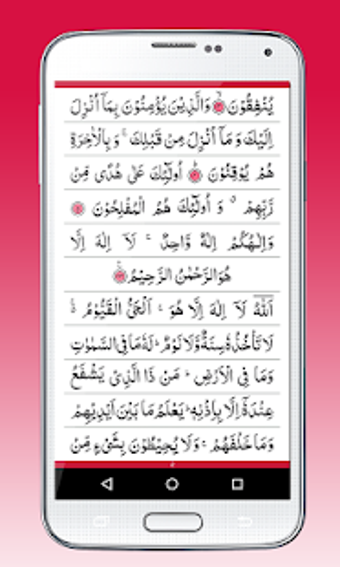 يُنْفِقُوْنَ ۙ وَالَّذِيْنَ يُؤْمِنُوْنَ بِمَاۤ اُنْزِلَ
اِلَيْكَ وَ مَاۤ اُنْزِلَ مِنْ قَبْلِكَ ۚ وَ بِالْاٰخِرَةِ
هُمْ يُوْقِنُوْنَ ؕ اُولٰٓئِكَ عَلٰى هُدًى مِّنْ
رَّبِّهِمْ ۗ وَ اُولٰٓئِكَ هُمُ الْمُفْلِحُوْنَ
وَاِلٰـهُكُمْ اِلٰهٌ وَّاحِدٌ ۚ لَاۤ اِلٰهَ اِلَّا
هُوَ الرَّحْمٰنُ الرَّحِيْمُ
اَللّٰهُ لَاۤ اِلٰهَ اِلَّا هُوَ ۚ اَلْحَىُّ الْقَيُّوْمُ ۚ
لَا تَاْخُذُهٗ سِنَةٌ وَّلَا نَوْمٌ ؕ لَهٗ مَا فِى السَّمٰوٰتِ
وَمَا فِى الْاَرْضِ ؕ مَنْ ذَا الَّذِىْ يَشْفَعُ
عِنْدَهٗۤ اِلَّا بِاِذْنِهٖ ؕ يَعْلَمُ مَا بَيْنَ اَيْدِيْهِمْ
وَمَا خَلْفَهُمْ ۚ وَلَا يُحِيْطُوْنَ بِشَىْءٍ مِّنْ